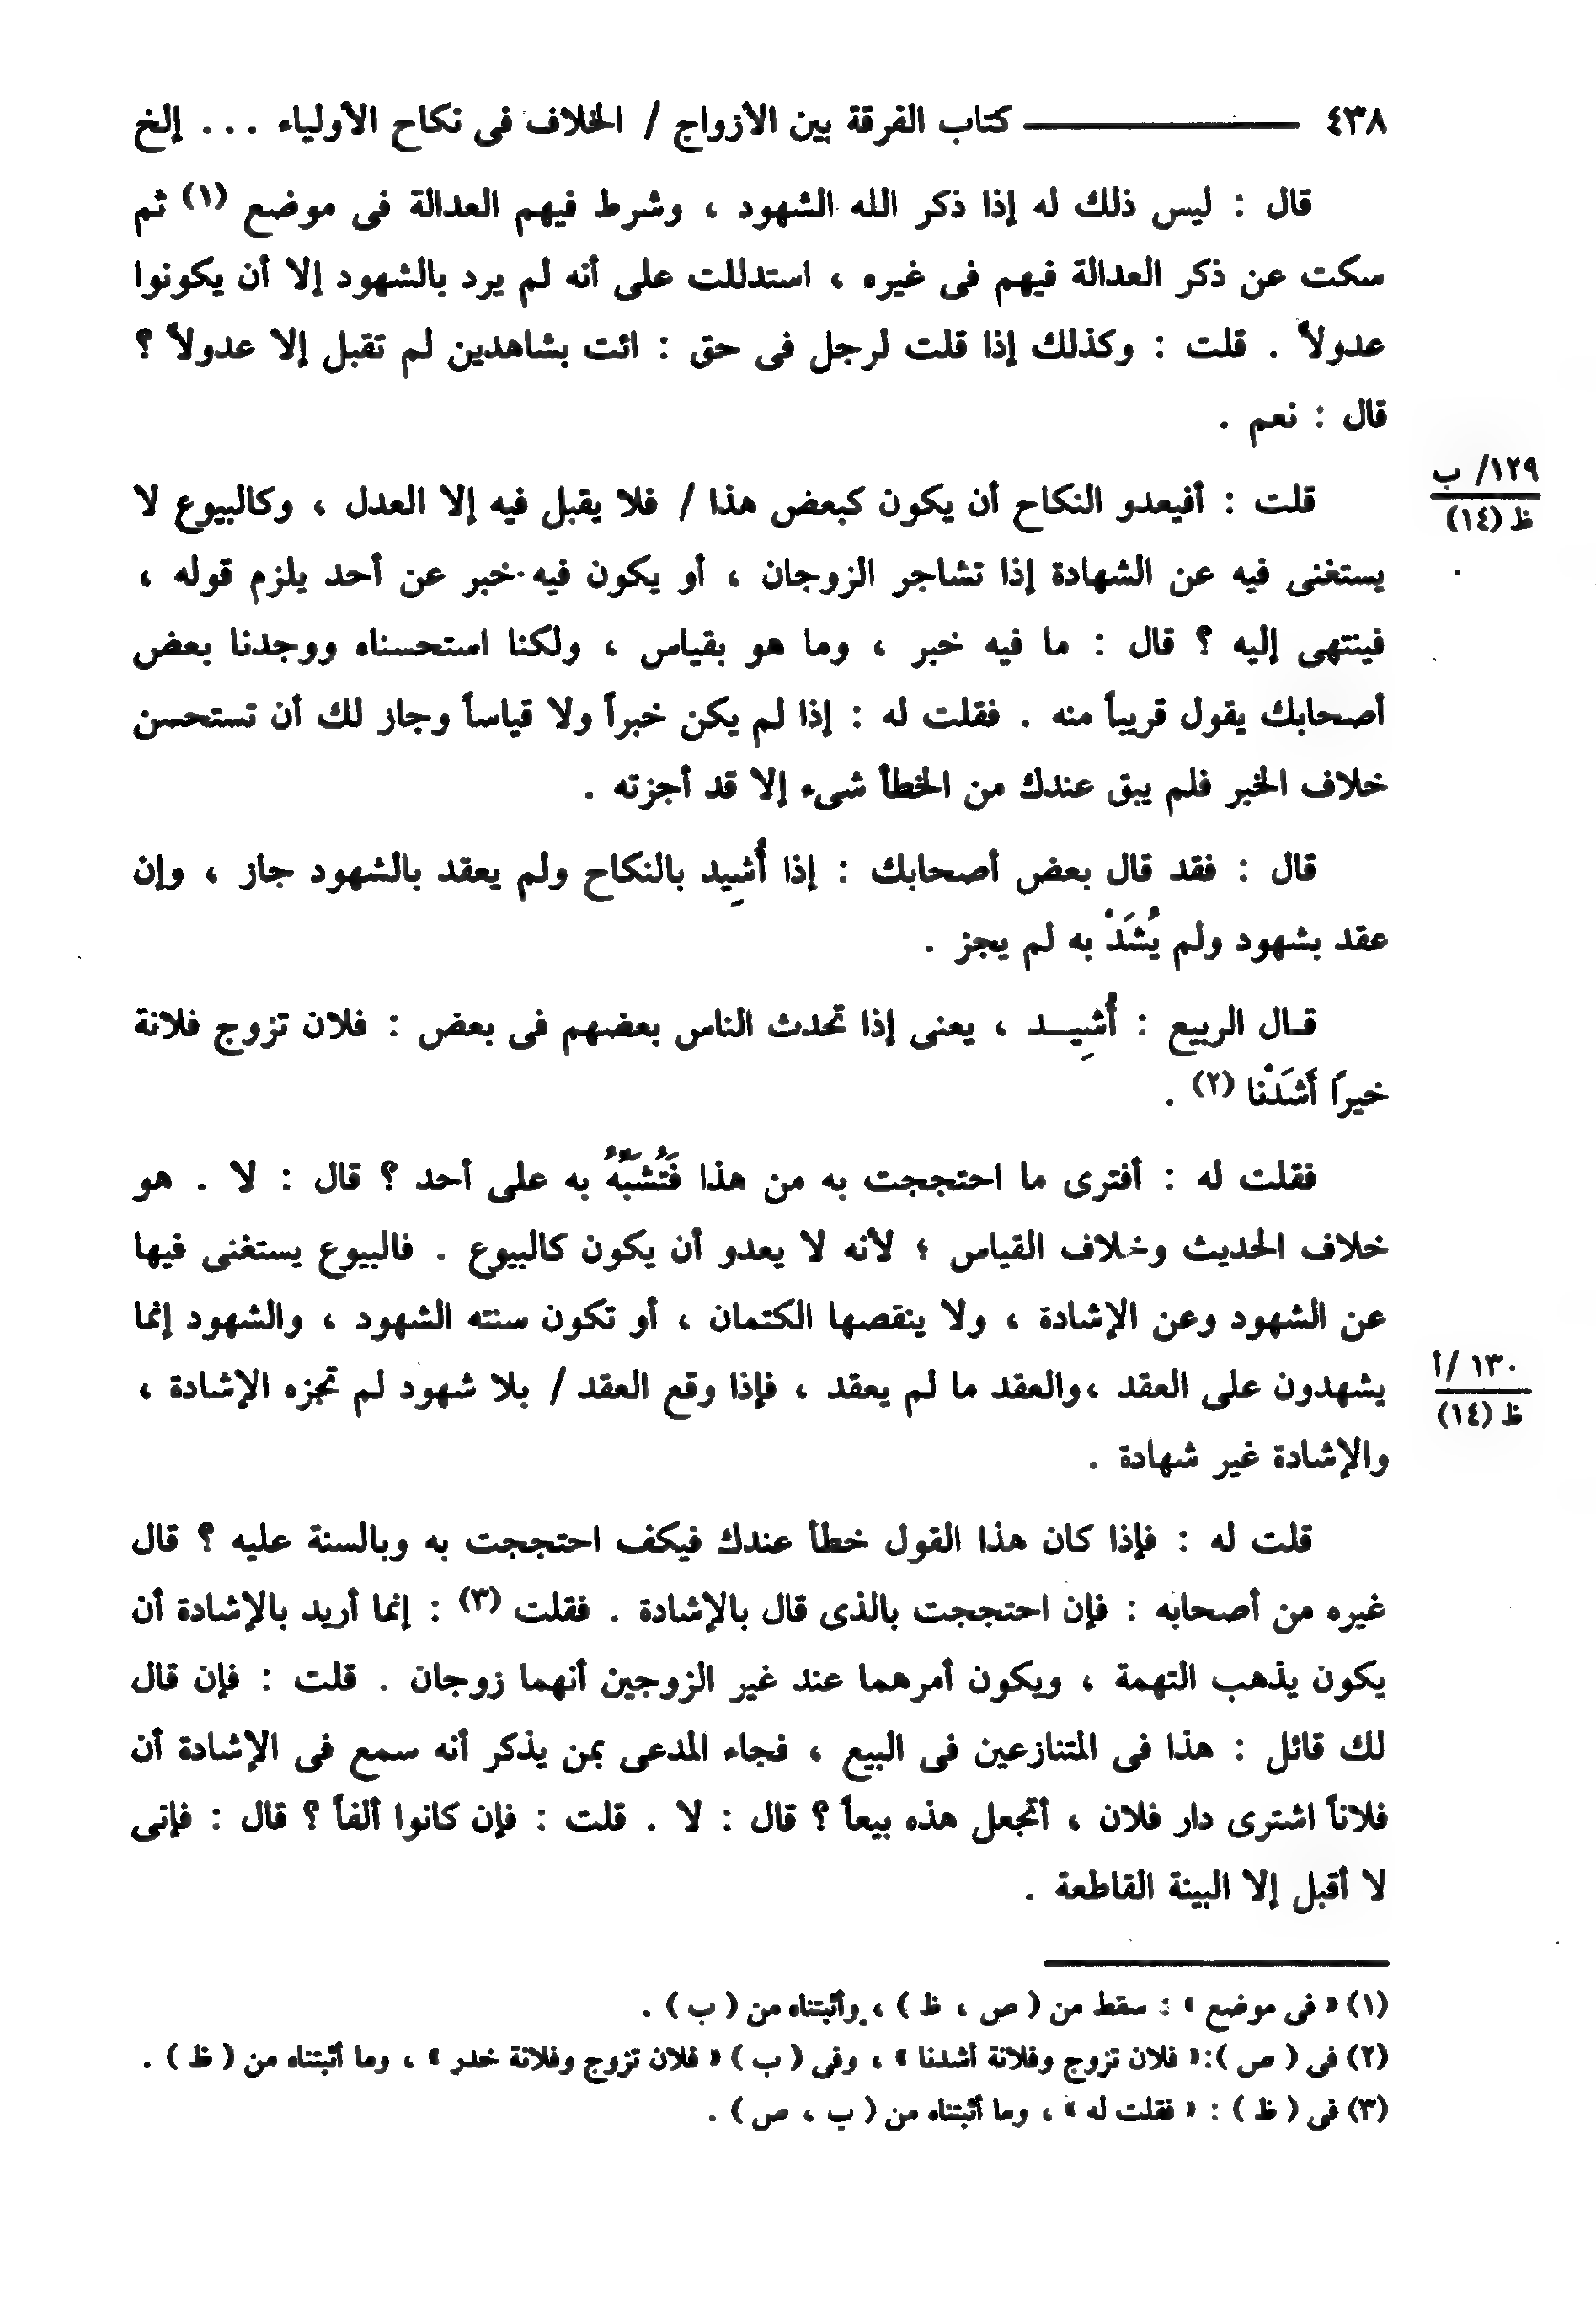 ٤٣٨ ــــــــــــــــ كتاب الفرقة بين الأزواج / الخلاف فى نكاح الأولياء . . . إلخ
قال : ليس ذلك له إذا ذكر الله الشهود ، وشرط فيهم العدالة فى موضع (١) ثم
سكت عن ذكر العدالة فيهم فى غيره ، استدللت على أنه لم يرد بالشهود إلا أن يكونوا
عدولاً . قلت : وكذلك إذا قلت لرجل فى حق : ائت بشاهدين لم تقبل إلا عدولاً ؟
قال : نعم .
١٢٩/ ب
ظ (١٤)
قلت : أفيعدو النكاح أن يكون كبعض هذا / فلا يقبل فيه إلا العدل ، وكالبيوع لا
يستغنى فيه عن الشهادة إذا تشاجر الزوجان ، أو يكون فيه خبر عن أحد يلزم قوله ،
فينتهى إليه ؟ قال : ما فيه خبر ، وما هو بقياس ، ولكنا استحسناه ووجدنا بعض
أصحابك يقول قريباً منه . فقلت له : إذا لم يكن خبراً ولا قياساً وجاز لك أن تستحسن
خلاف الخبر فلم يبق عندك من الخطأ شىء إلا قد أجزته .
قال : فقد قال بعض أصحابك : إذا أُشِيد بالنكاح ولم يعقد بالشهود جاز ، وإن
عقد بشهود ولم يُشَدْ به لم يجز .
قـال الربيع : أُشِيــد ، يعنى إذا تحدث الناس بعضهم فى بعض : فلان تزوج فلانة
خيرًا أَشَدْنا (٢) .
فقلت له : أفترى ما احتججت به من هذا فَتُشَبِّهُ به على أحد ؟ قال : لا . هو
خلاف الحديث وخلاف القياس ؛ لأنه لا يعدو أن يكون كالبيوع . فالبيوع يستغنى فيها
عن الشهود وعن الإشادة ، ولا ينقصها الكتمان ، أو تكون سنته الشهود ، والشهود إنما
١٣٠ /أ
ظ (١٤)
يشهدون على العقد ،والعقد ما لم يعقد ، فإذا وقع العقد / بلا شهود لم تجزه الإشادة ،
والإشادة غير شهادة .
قلت له : فإذا كان هذا القول خطأ عندك فيكف احتججت به وبالسنة عليه ؟ قال
غيره من أصحابه : فإن احتججت بالذى قال بالإشادة . فقلت (٣) : إنما أريد بالإشادة أن
يكون يذهب التهمة ، ويكون أمرهما عند غير الزوجين أنهما زوجان . قلت : فإن قال
لك قائل : هذا فى المتنازعين فى البيع ، فجاء المدعى بمن يذكر أنه سمع فى الإشادة أن
فلاناً اشترى دار فلان ، أتجعل هذه بيعاً ؟ قال : لا . قلت : فإن كانوا ألفاً ؟ قال : فإنى
لا أقبل إلا البينة القاطعة .
(١) « فى موضع » : سقط من ( ص ، ظ ) ، وأثبتناه من ( ب ) .
(٢) فى ( ص ):« فلان تزوج وفلانة أشدنا » ، وفى ( ب ) « فلان تزوج وفلانة خدر » ، وما أثبتناه من ( ظ ) .
(٣) فى ( ظ ) : « فقلت له » ، وما أثبتناه من ( ب ، ص ) .